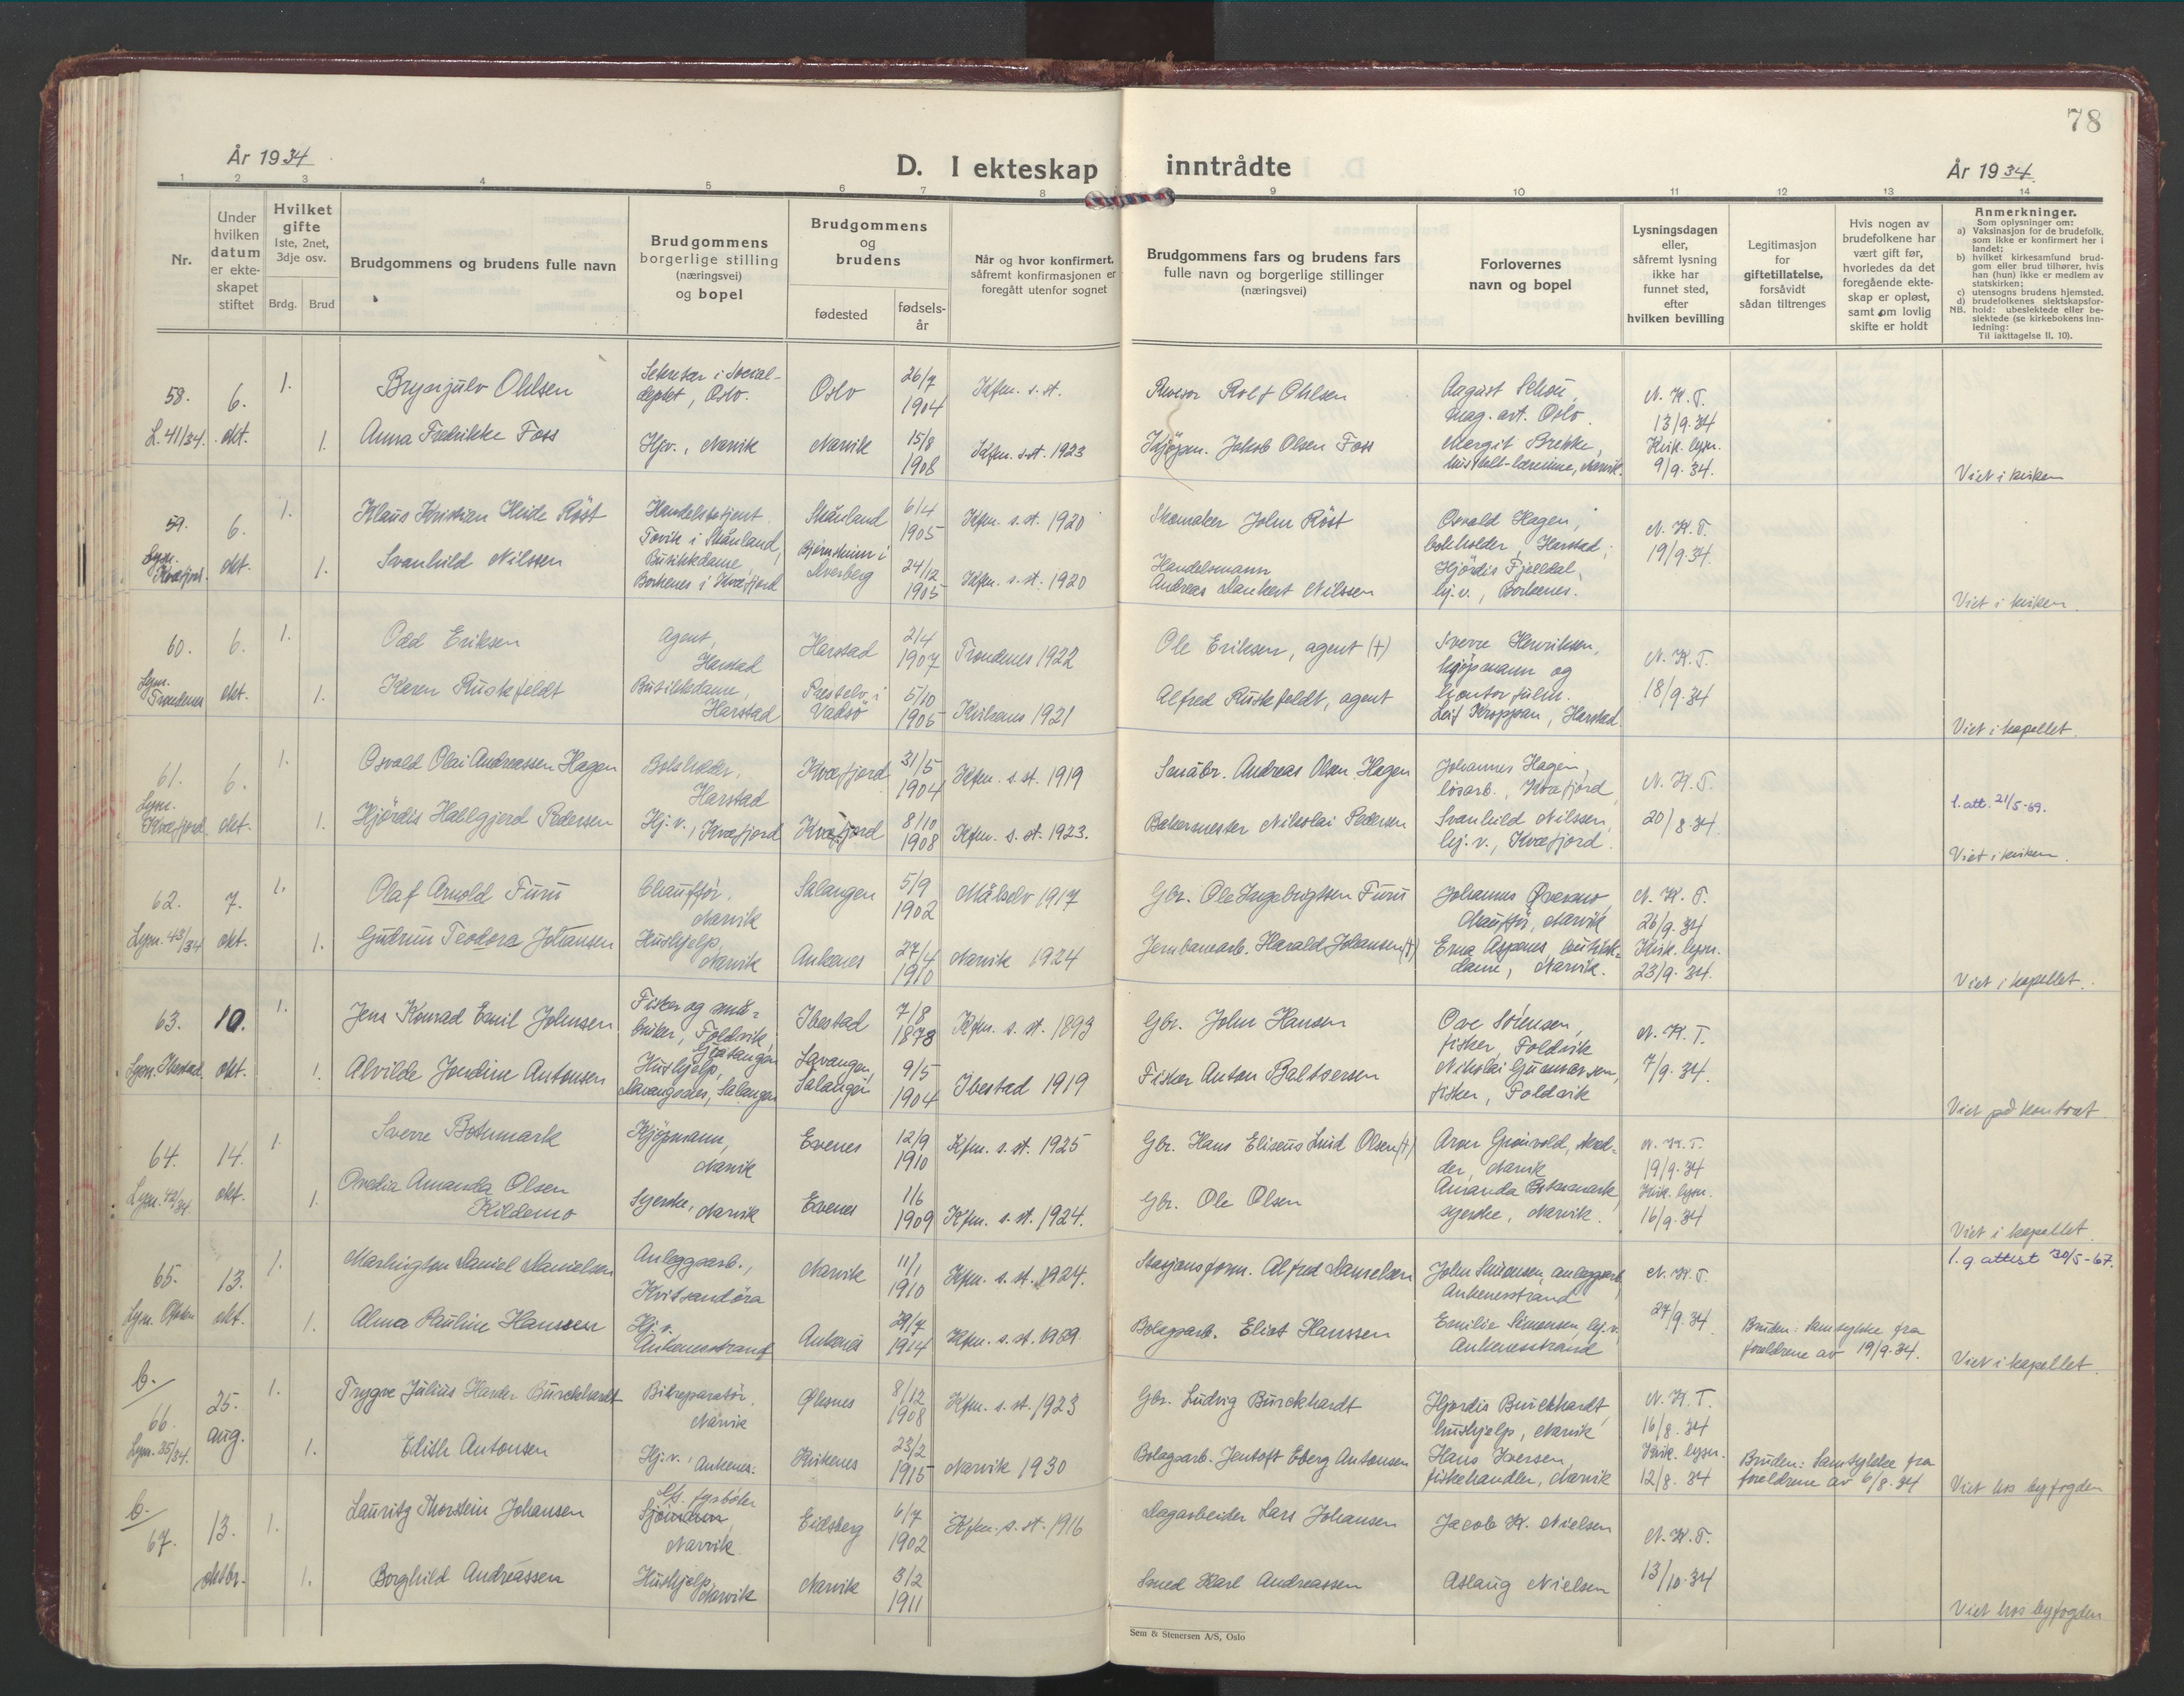 78
År 1934
D. I ekteskap inntrådte
År 1934.
1 2 3 4 5 6 7 8 9 10 11 12 13 14
Nr.
Under hvilken datum er ekteskapet stiftet
Hvilket gifte
1ste, 2net, 3dje osv.
Brdg. Brud
Brudgommens og brudens fulle navn
Brudgommens borgerlige stilling (næringsvei) og bopel
Brudgommens og brudens
fødested
fødsels-år
Når og hvor konfirmert, såfremt konfirmasjonen er foregått utenfor sognet
Brudgommens fars og brudens fars fulle navn og borgerlige stillinger (næringsvei)
Forlovernes navn og bopel
Lysningsdagen eller, såfremt lysning ikke har funnet sted, efter hvilken bevilling
Legitimasjon for giftetillatelse, forsåvidt sådan tiltrenges
Hvis nogen av brudefolkene har vært gift før, hvorledes da det foregående ekteskap er opløst, samt om lovlig skifte er holdt
Anmerkninger.
Som oplysninger om:
a) Vaksinasjon for de brudefolk, som ikke er konfirmert her i landet;
b) hvilket kirkesamfund brudgom eller brud tilhører, hvis han (hun) ikke er medlem av statskirken;
c) utensogns brudens hjemsted.
d) brudefolkenes slektskapsforhold: ubeslektede eller beslektede (se kirkebokens Innledning:
NB.
Til iakttagelse II. 10).
58. 6. 1. Brynjulv Ohlsen Sekretær i Social-deptet, Oslo. Oslo 26/7 1904 Kfm. s. st. Revisor Rolf Ohlsen August Schou, mag. art. Oslo. N. K. T. 13/9.34
L. 41/34. okt. 1. Anna Fredrikke Foss Hj.v., Narvik Narvik 15/8 1908 Kfm. s. st. 1923 Kjøpm. Jakob Olsen Foss Margit Brekke, lærerinne, Narvik. Kirk. lysn. 9/9.34. Viet i kirken
59. 6. 1. Klaus Kristian Heide Röst Handelsbetjent Tovik i Skånland, Skånland 6/4 1905 Kfm. s. st. 1920 Skomaker John Röst Osvald Hagen, bokholder, Harstad; N. K. T. 19/9.34.
Lysn. Kvæfjord. okt. 1. Svanhild Nilssen Butikkdame, Borkenes i Kvæfjord 24/12 1905 Kfm. s. st. 1920 Handelsmann Andreas Nilssen Hjördis Fjelldal, hj.v., Borkenes. Viet i kirken.
60. 6. 1. Odd Eriksen Agent, Harstad Harstad 2/4 1907 Trondenes 1922 Ole Eriksen, agent (†) Sverre Henriksen, kjøpmann og N. K. T. 18/9.34
Lysn. Trondenes okt. 1. Karen Ruskfeldt Butikkdame, Harstad Vadsö 5/10 1905 1921 Alfred Ruskfeldt, agent Leif Kroppan, Harstad. Viet i kapellet.
61. 6. 1. Osvald Olai Andreassen Hagen Bokholder, Harstad Kvæfjord 31/5 1904 Kfm. s. st. 1919 Småbr. Andreas Olsen Hagen Johannes Hagen, løsarb., Kvæfjord N. K. T. 20/8.34. 1. att. 21/5-69.
Lysn. Kvæfjord okt. 1. Hjördis Hallgjerd Pedersen Hj.v., Kvæfjord Kvæfjord 8/10 1908 Kfm. s. st. 1923. Bakermester Nikolai Pedersen Svanhild Nilssen, hj.v., Kvæfjord. Viet i kirken.
62. 7. 1. Olaf Arnold Furu Chauffør, Narvik Salangen 5/9 1902 Målselv 1917 Gbr. Ole Ingebrigtsen Furu Johannes chauffør, Narvik N. K. T. 26/9.34
Lysn. 43/34 okt. 1. Gudrun Teodora Johansen Hushjelp, Narvik Ankenes 27/4 1910 Narvik 1924 Jernbanearb. Harald Johansen (†) Erna Aspenes, butikkdame, Narvik. Kirk. lysn. 23/9.34. Viet i kapellet.
63. 10. 1. Jens Konrad Emil Johnsen Fisker og småbruker, Foldvik, Gratangen Ibestad 7/8 1878 Kfm. s. st. 1893 Gbr. John Hansen Ove Sörensen, fisker, Foldvik N. K. T. 7/9.34.
Lysn. Ibestad. okt. 1. Alvilde Jondine Antonsen Hushjelp, Salangen Lavangen, Salangen 9/5 1904 Ibestad 1919 Fisker Anton Baltsersen Nikolai Gunnarsen, fisker, Foldvik Viet på kontoret
64. 14. 1. Sverre Botnmark Kjøpmann, Narvik Evenes 12/9 1910 Kfm. s. st. 1925 Gbr. Hans Eliseus Lind Olsen (†) Aron Grønvold, skredder, Narvik N. K. T. 19/9.34
Lysn. 42/34 okt. 1. Ovedia Amanda Olsen Kildemo Syerske, Narvik Evenes 1/6 1909 Kfm. s. st. 1924. Gbr. Ole Olsen Amanda Botnmark, syerske, Narvik. Kirk. lysn. 16/9.34 Viet i kapellet.
65. 13. 1. Marlington Daniel Danielsen Anleggsarb., Kvitsandøra Narvik 11/1 1910 Kfm. s. st. 1924. Stasjonsform. Alfred Danielsen John Simonsen, anleggsarb. Ankenesstrand N. K. T. 27/9.34 1. g attest 30/5-67.
Lysn. Ofoten okt. 1. Alma Pauline Hanssen Hj.v. Ankenesstrand Ankenes 29/7 1914 Kfm. s. st. 1929. Bolagsarb. Eliot Hanssen Emilie Simonsen, hj.v. Ankenesstrand Bruden: Samtykke fra foreldrene av 19/9.34. Viet i kapellet.
b. 66. 25. 1. Trygve Julius Harder Burckhardt Bilreparatör, Narvik Øksnes 8/12 1908 Kfm. s. st. 1923 Gbr. Ludvig Burckhardt Hjördis Burckhardt, hushjelp, Narvik N. K. T. 16/8.34
Lysn. 35/34. aug. 1. Edith Antonsen Hj.v., Ankenes. 23/2 1915 Narvik 1930 Bolagsarb. Jentoft Eberg Antonsen Hans Iversen, fiskehandler, Narvik Kirk. lysn. 12/8.34 Bruden: Samtykke fra foreldrene av 6/8.34 Viet hos byfogden
b. 67. 13. 1. Lauritz Thorstein Johansen fyrbøter Sjømann, Narvik. Eidsberg 6/7 1902 Kfm. s. st. 1916 Dagarbeider Lars Johansen Jacob K. Nielsen N. K. T. 13/10.34
oktbr. 1. Borghild Andreassen Hushjelp, Narvik Narvik 3/2 1911 Smed Karl Andreassen Aslaug Nielsen Viet hos byfogden
Sem & Stenersen A/S, Oslo